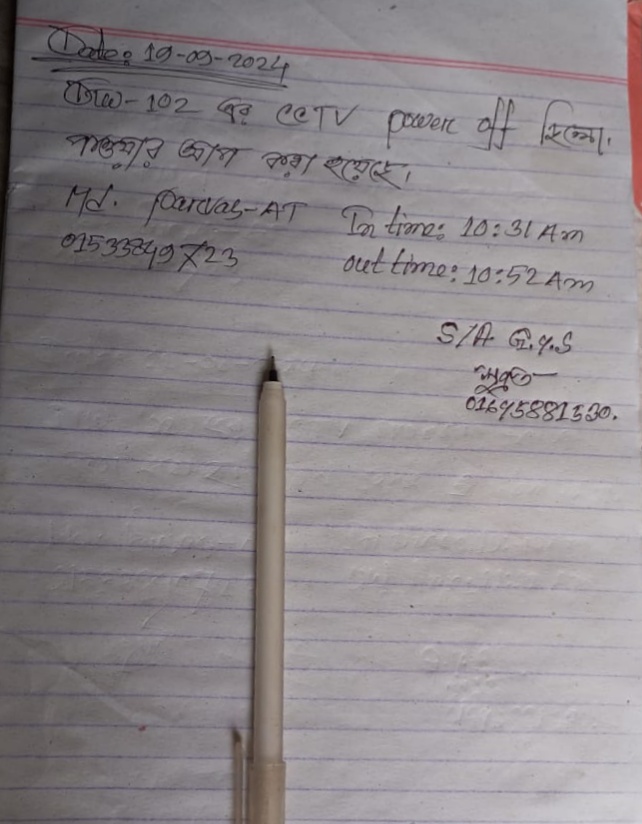 Date: 19-09-2024
জিও-102 এর CCTV power off ছিলো।
পাওয়ার অন করা হয়েছে।
Md. parvas-AT
In time: 10:31 Am
01533849723
out time: 10:52 Am
S/A G.4.S
01645881530.